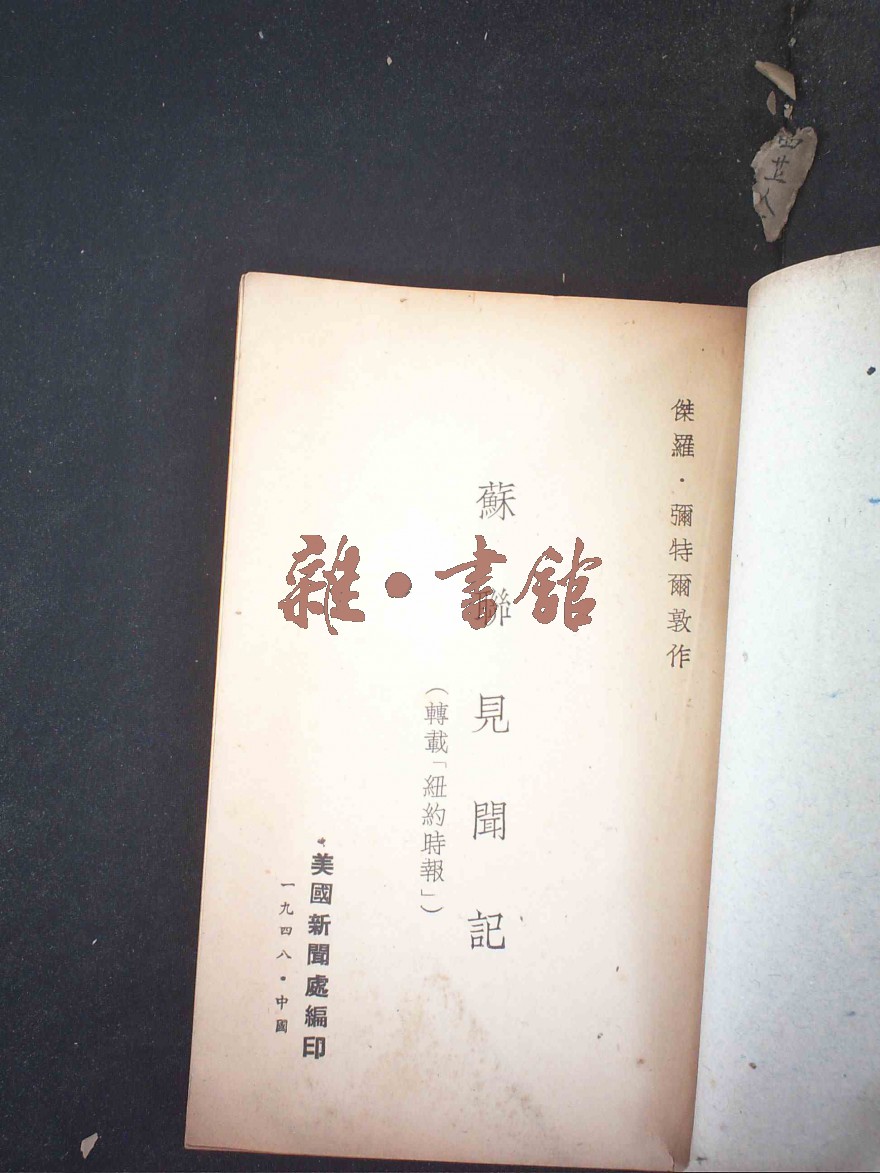 傑羅·彌特爾敦作
蘇聯見聞記
(轉載「紐約時報」)
美國新聞處編印
一九四八·中國
雜·書館